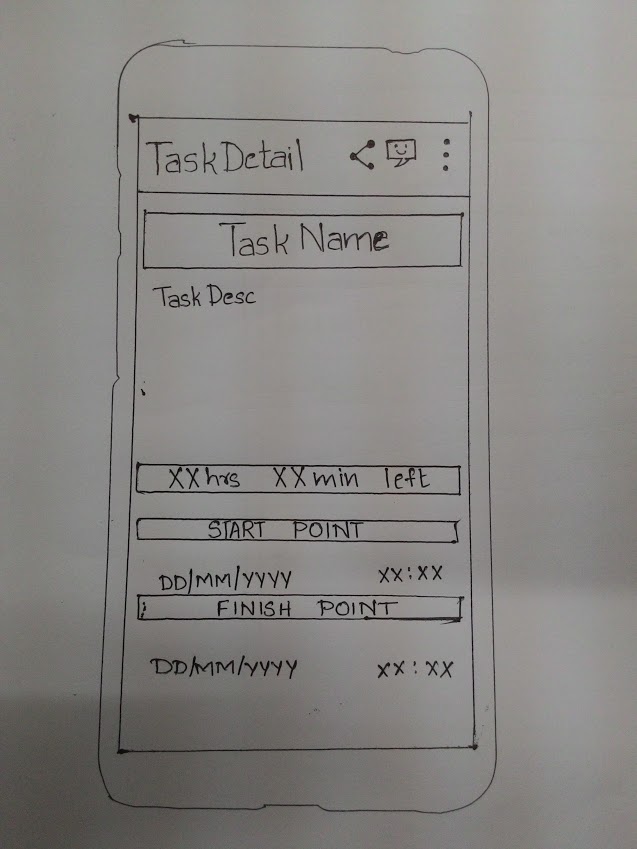 Task Detail
Task Name
Task Desc
XX hrs XX min left
START POINT
DD/MM/YYYY XX:XX
FINISH POINT
DD/MM/YYYY XX:XX